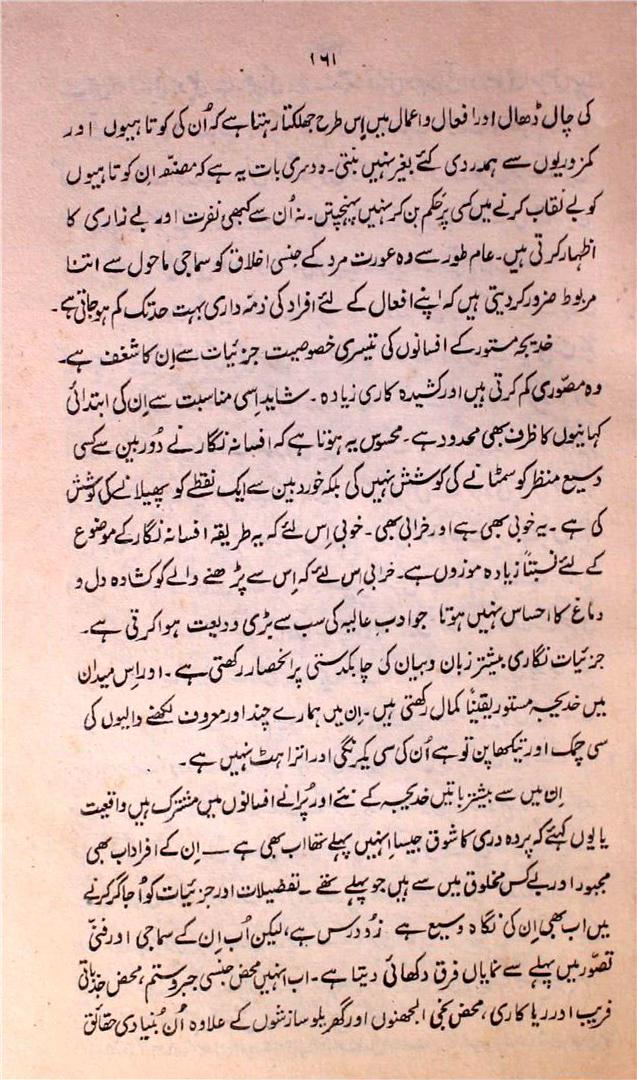 ۱۶۱
کی چال ڈھال اور افعال و اعمال میں اِس طرح جھلکتا رہتا ہے کہ اُن کی کوتاہیوں اور
کمزوریوں سے ہمدردی کئے بغیر نہیں بنتی۔ دوسری بات یہ ہے کہ مصنفہ اِن کوتاہیوں
کو بے نقاب کرنے میں کسی پر حَکم بن کر نہیں پہنچتیں۔ نہ اُن سے کبھی نفرت اور بے زاری کا
اظہار کرتی ہیں۔ عام طور سے وہ عورت مرد کے جنسی اخلاق کو سماجی ماحول سے اتنا
مربوط ضرور کر دیتی ہیں کہ اپنے افعال کے لئے افراد کی ذمّہ داری بہت حد تک کم ہو جاتی ہے۔
خدیجہ مستور کے افسانوں کی تیسری خصوصیت جزئیات سے اِن کا شغف ہے۔
وہ مصوّری کم کرتی ہیں اور کشیدہ کاری زیادہ۔ شاید اِسی مناسبت سے اِن کی ابتدائی
کہانیوں کا ظرف بھی محدود ہے۔ محسوس یہ ہوتا ہے کہ افسانہ نگار نے دُوربین سے کسی
وسیع منظر کو سمٹانے کی کوشش نہیں کی بلکہ خوردبین سے ایک نقطے کو پھیلانے کی کوشش
کی ہے۔ یہ خوبی بھی ہے اور خرابی بھی۔ خوبی اِس لئے کہ یہ طریقہ افسانہ نگار کے موضوع
کے لئے نسبتاً زیادہ موزوں ہے۔ خرابی اِس لئے کہ اِس سے پڑھنے والے کو کشادہ دل و
دماغ کا احساس نہیں ہوتا جو ادبِ عالیہ کی سب سے بڑی ودیعت ہوا کرتی ہے۔
جزئیات نگاری بیشتر زبان و بیان کی چابکدستی پر انحصار رکھتی ہے۔ اور اِس میدان
میں خدیجہ مستور یقیناً کمال رکھتی ہیں۔ اِن میں ہمارے چند اور معروف لکھنے والیوں کی
سی چمک اور تیکھا پن تو ہے اُن کی سی یک رنگی اور اتراہٹ نہیں ہے۔
اِن میں سے بیشتر باتیں خدیجہ کے نئے اور پُرانے افسانوں میں مشترک ہیں واقعیت
یا یوں کہئے کہ پردہ دری کا شوق جیسا اِنہیں پہلے تھا اب بھی ہے ــــ اِن کے افراد اب بھی
مجبور اور بے کس مخلوق میں سے ہیں جو پہلے تھے۔ تفصیلات اور جزئیات کو اُجاگر کرنے
میں اب بھی اِن کی نگاہ وسیع ہے زُود رس ہے، لیکن اُب اِن کے سماجی اور فنّی
تصوّر میں پہلے سے نمایاں فرق دکھائی دیتا ہے۔ اب انہیں محض جنسی جبر و ستم، محض جذباتی
فریب اور ریاکاری، محض نجی الجھنوں اور گھریلو سازشوں کے علاوہ اُن بُنیادی حقائق